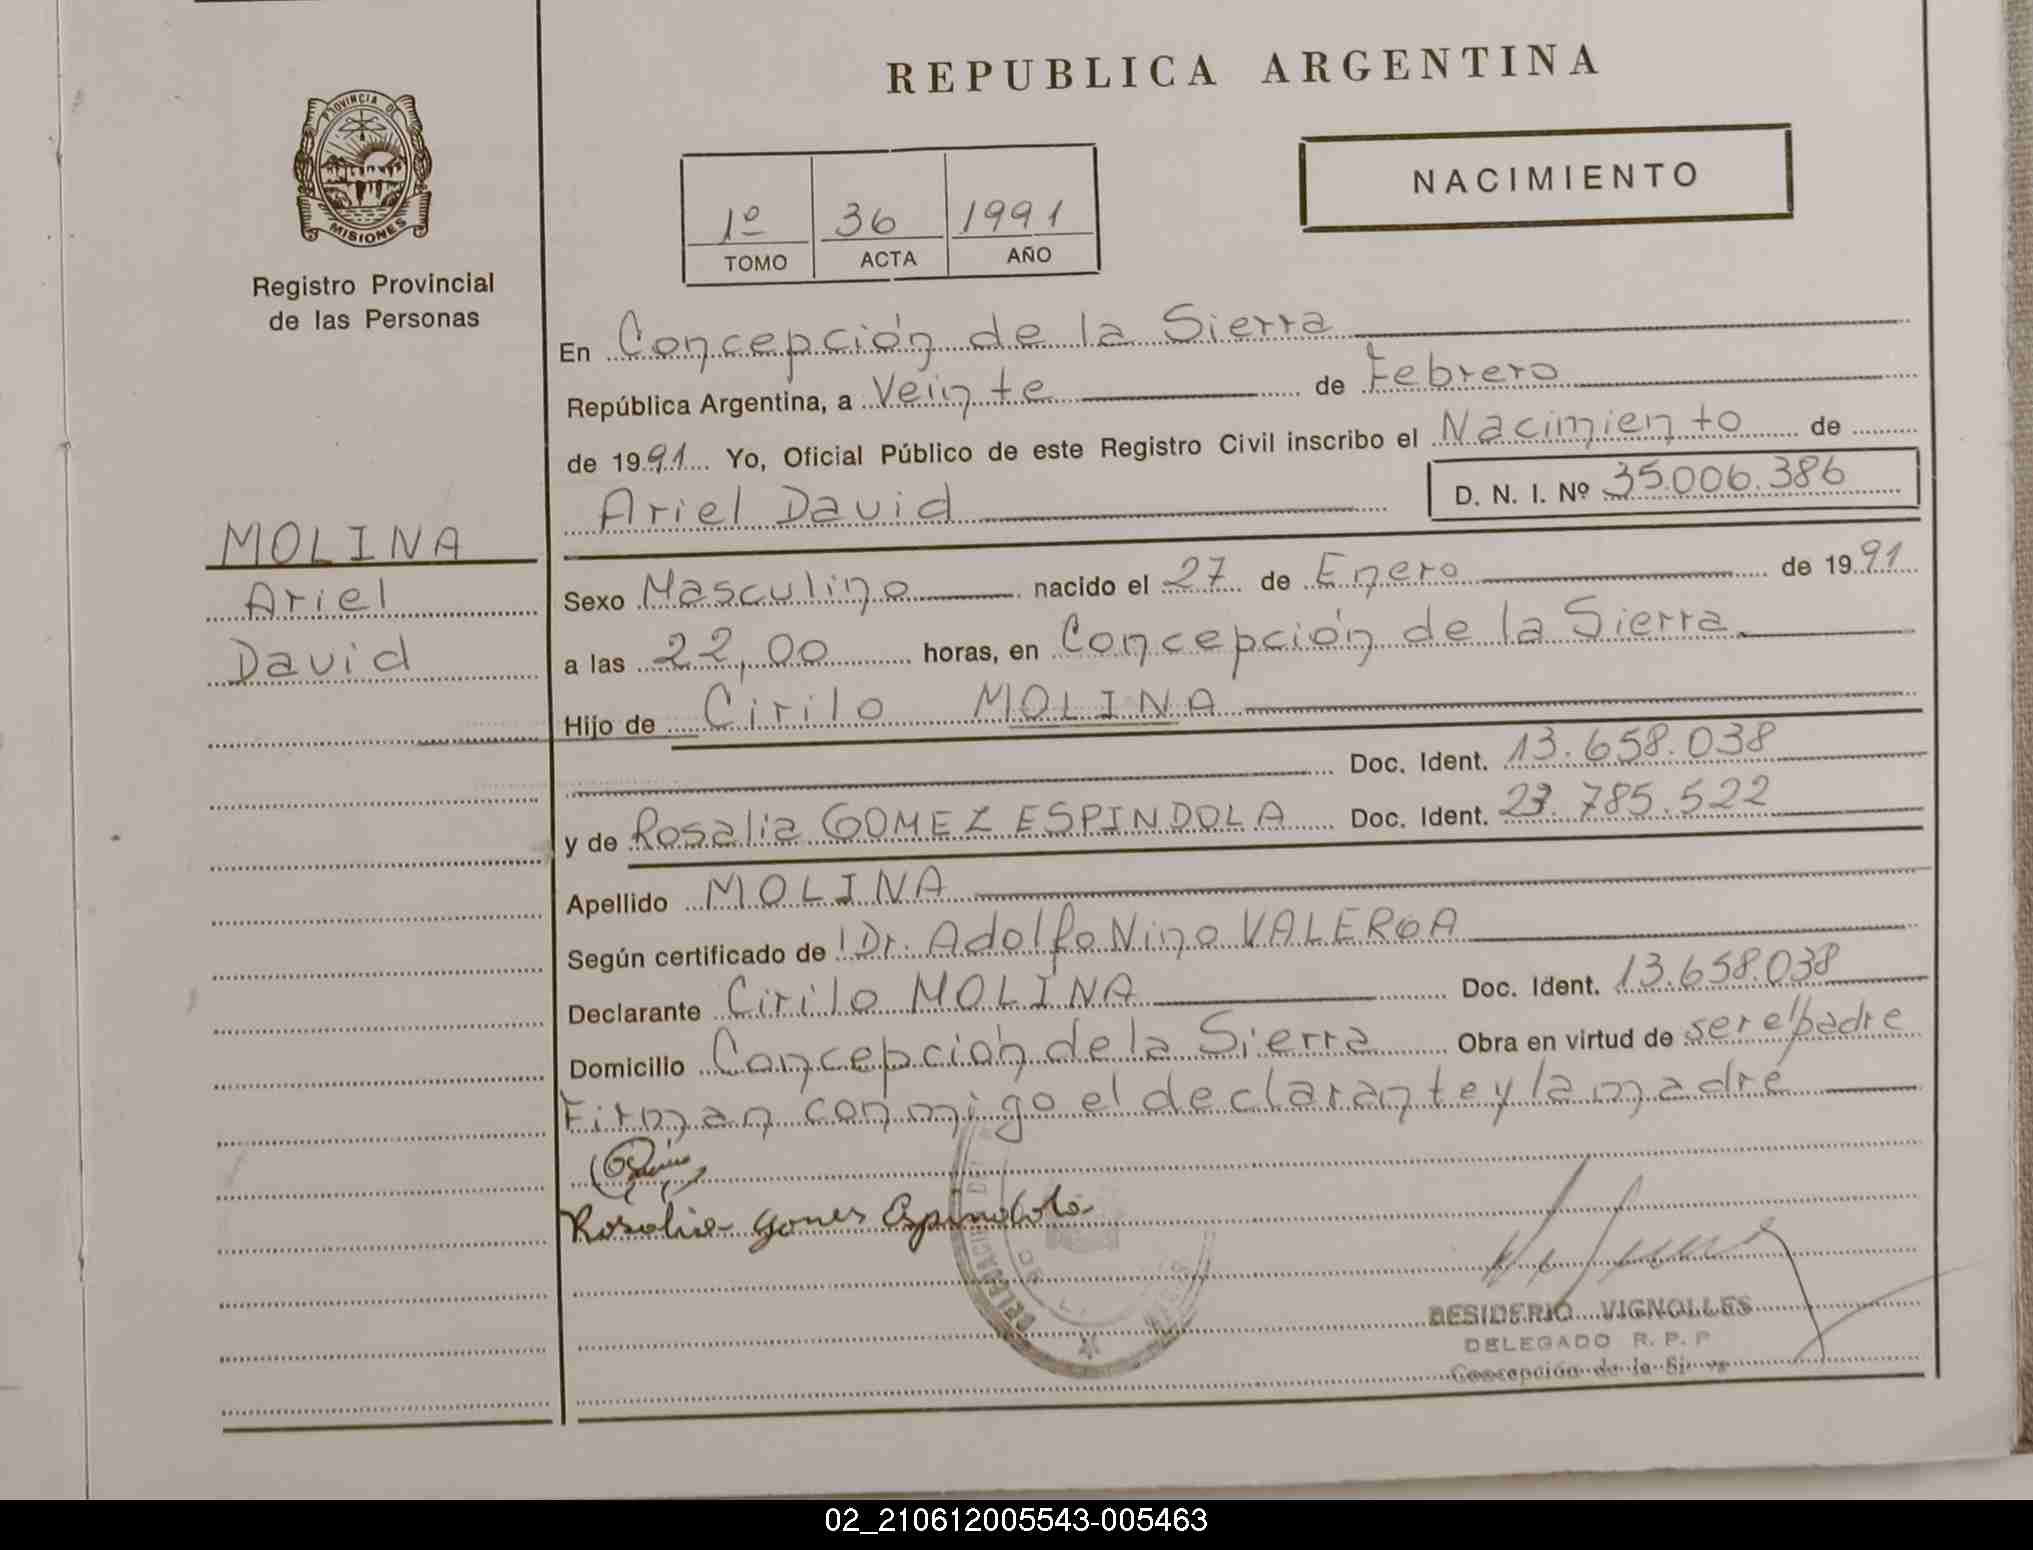 REPUBLICA ARGENTINA
PROVINCIA DE
MISIONES
Registro Provincial
de las Personas
NACIMIENTO
1º 36 1991
TOMO ACTA AÑO
En Concepción de la Sierra
República Argentina, a Veinte de Febrero
de 1991 Yo, Oficial Público de este Registro Civil inscribo el Nacimiento de
Ariel David D. N. I. Nº 35.006.386
MOLINA
Ariel
David
Sexo Masculino nacido el 27 de Enero de 1991
a las 22,00 horas, en Concepción de la Sierra
Hijo de Cirilo MOLINA
Doc. Ident. 13.658.038
y de Rosalia GOMEZ ESPINDOLA Doc. Ident. 23.785.522
Apellido MOLINA
Según certificado de Dr. Adolfo Nino VALEROA
Declarante Cirilo MOLINA Doc. Ident. 13.658.038
Domicilio Concepción de la Sierra Obra en virtud de ser el padre
Firman conmigo el declarante y la madre
Rosalia Gomes Espindola
DESIDERIO VIGNOLLES
DELEGADO R. P. P
Concepción de la Sierra
02_210612005543-005463